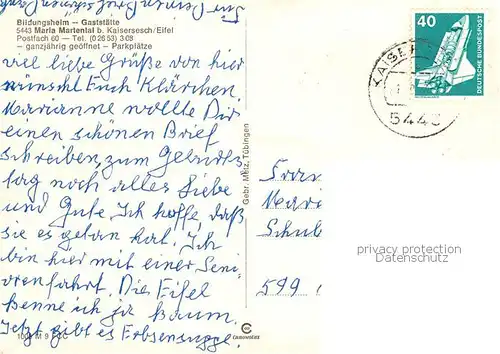 Bildungsheim – Gaststätte
5443 Maria Martental b. Kaisersesch/Eifel
Postfach 60 – Tel. (0 26 53) 3 08
– ganzjährig geöffnet – Parkplätze
viel liebe Grüße von hier
wünscht Euch Klärchen
Marianne wollte Dir
einen schönen Brief
schreiben, zum Geburts-
tag noch alles Liebe
und Gute. Ich hoffe, daß
sie es getan hat. Ich
bin hier mit einer Seni-
orenfahrt. Die Eifel
kenne ich ja kaum.
Jetzt gibt es Erbsensuppe.
Gebr. Metz, Tübingen
40
DEUTSCHE BUNDESPOST
KAISER
5443
Frau
Mari
Schul
599
privacy protection
DATENSCHUTZ